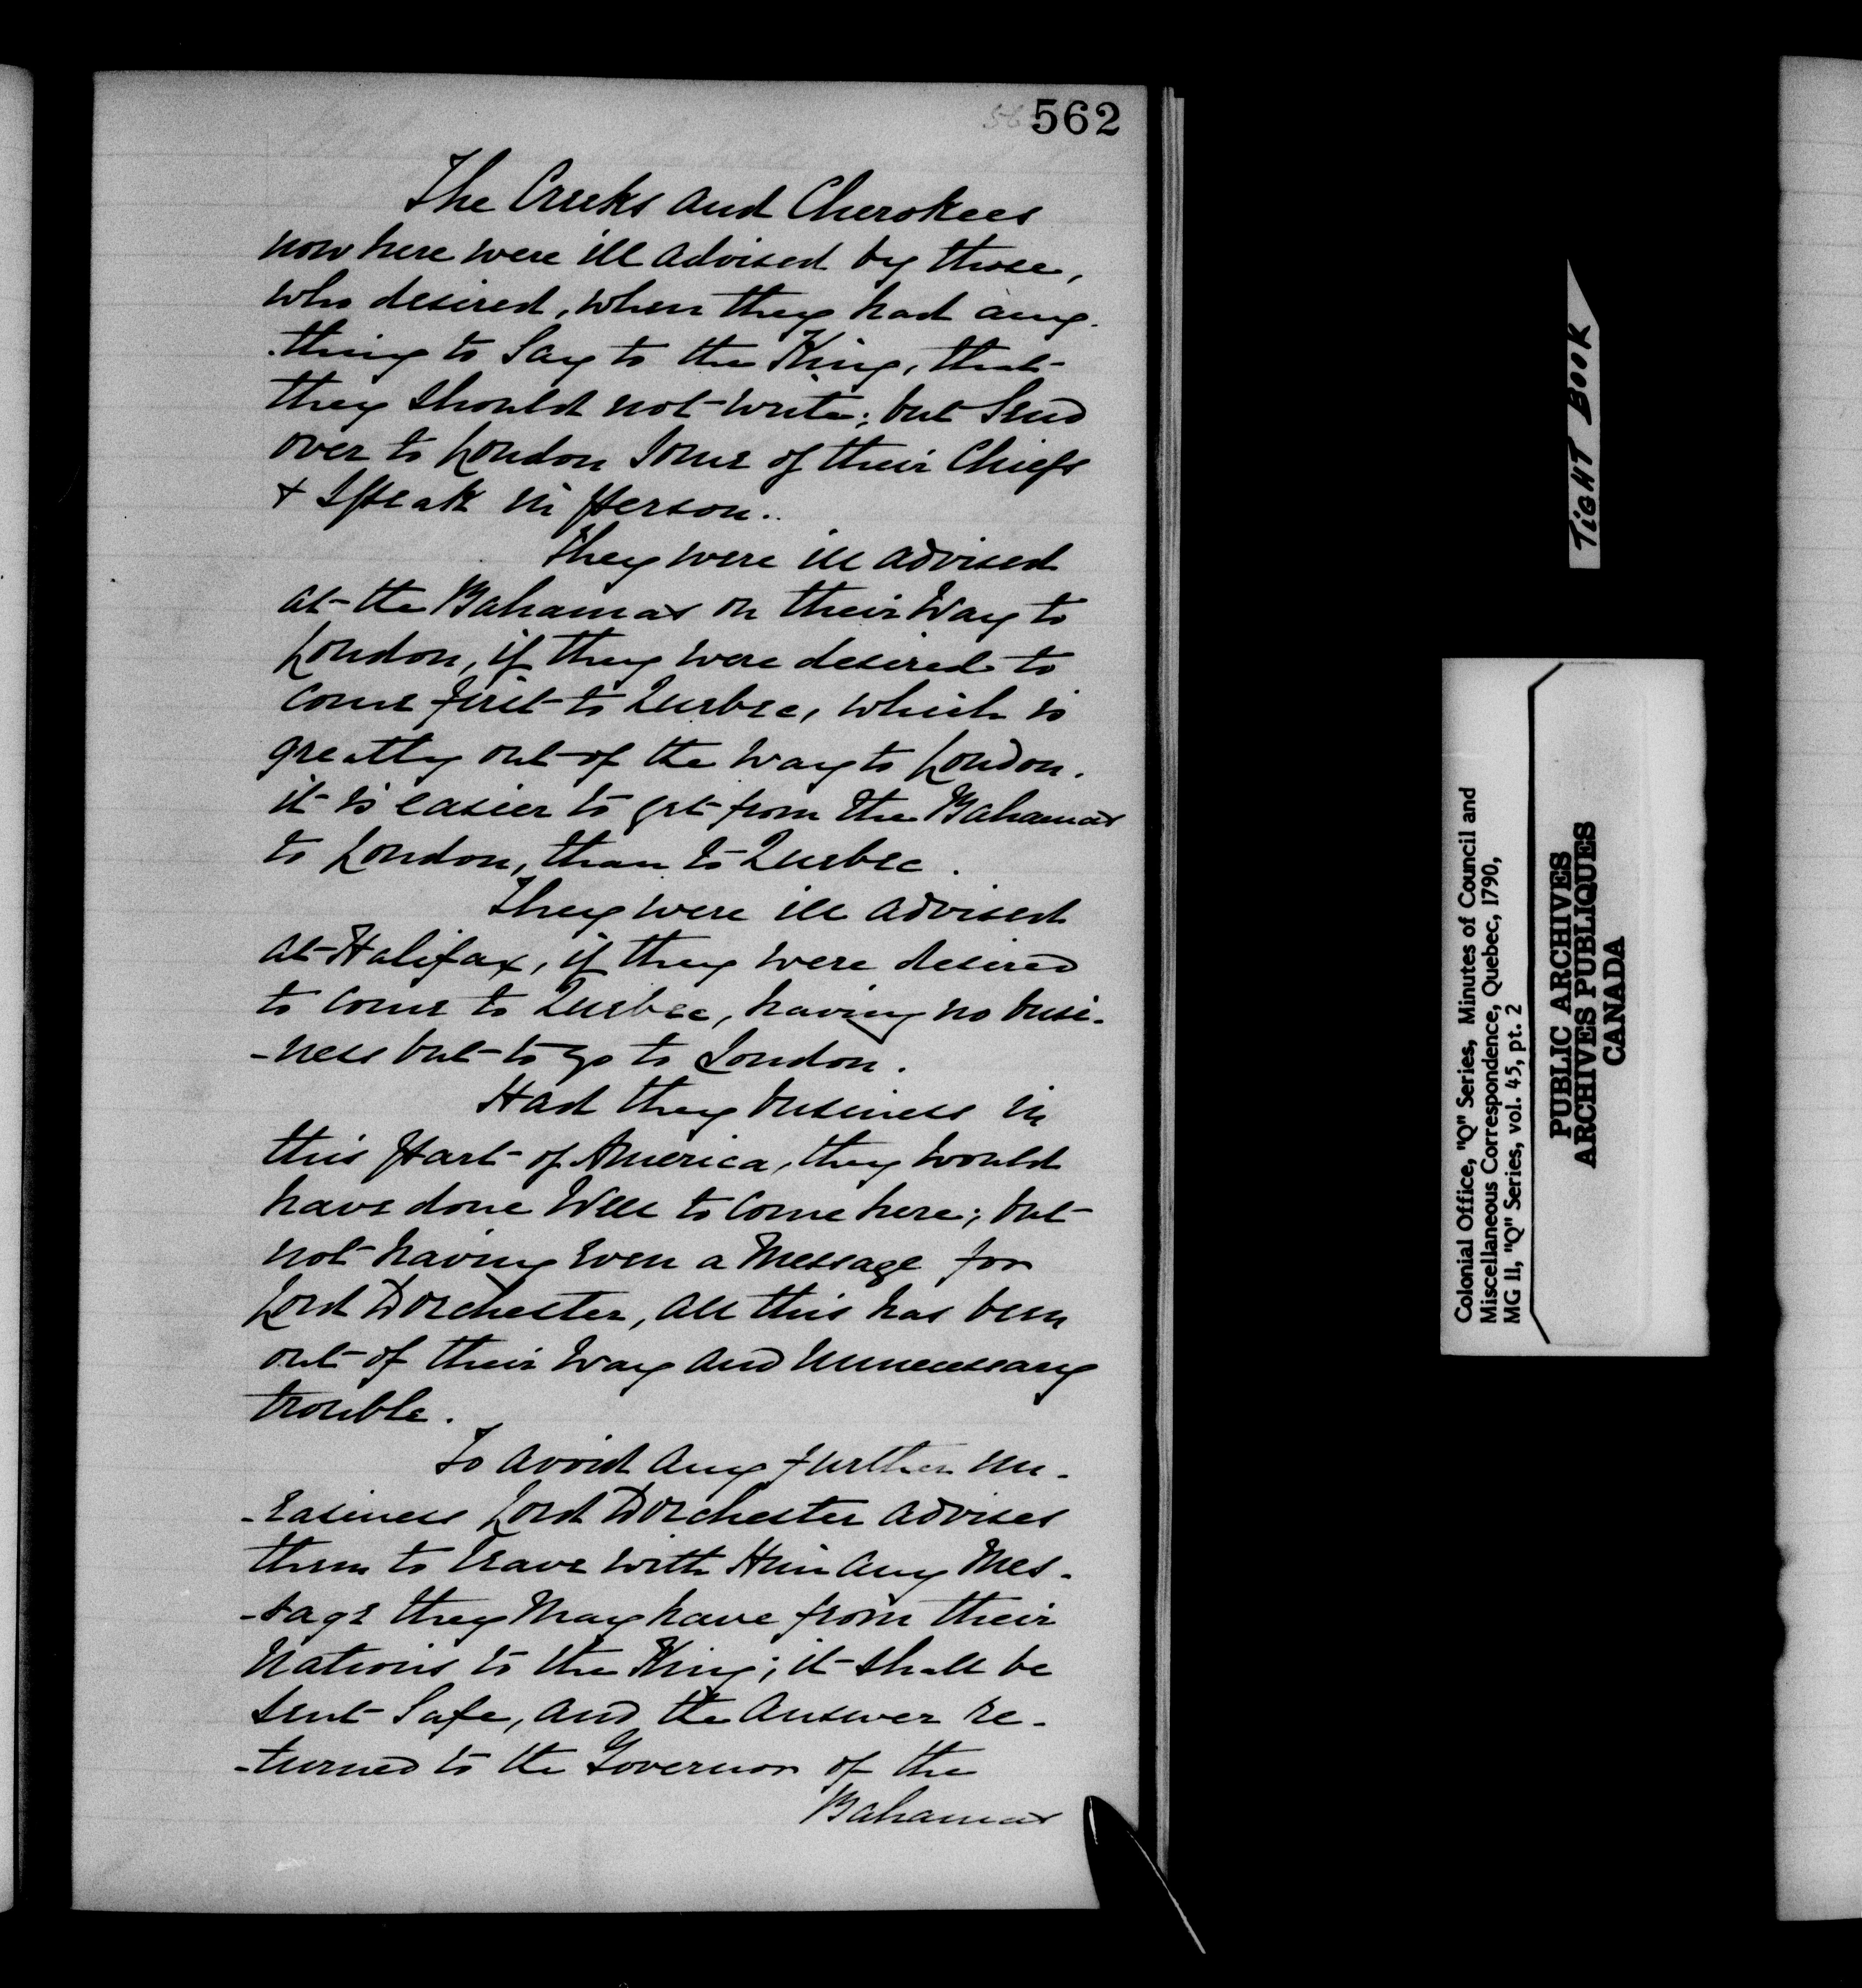 562
The Creeks and Cherokees
now here were ill advised by those,
who desired, when they had any-
-thing to Say to the King, that
they should not write; but Send
over to London Some of their Chiefs
& Speak in person.
They were ill advised
at the Bahamas on their Way to
London, if they were desired to
come first to Quebec, which is
greatly out of the way to London.
it is easier to get from the Bahamas
to London, than to Quebec.
They were ill advised
at Halifax, if they were desired
to come to Quebec, having no busi-
-ness but to go to London.
Had they business in
this part of America, they would
have done Well to come here; but
not having even a Message for
Lord Dorchester, all this has been
out of their Way and Unnecessary
trouble.
To avoid any further un-
-easiness Lord Dorchester advises
them to leave with Him any Mes-
-sage they May have from their
Nations to the King; it shall be
sent Safe, and the answer re-
-turned to the Governor of the
Bahamas
TIGHT BOOK
Colonial Office, "Q" Series, Minutes of Council and
Miscellaneous Correspondence, Quebec, 1790,
MG 11, "Q" Series, vol. 45, pt. 2
PUBLIC ARCHIVES
ARCHIVES PUBLIQUES
CANADA